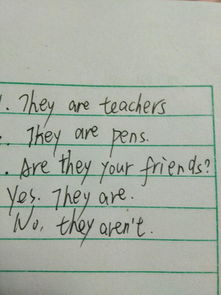 . They are teachers
. They are pens.
. Are they your friends?
Yes. They are.
No, they aren't.